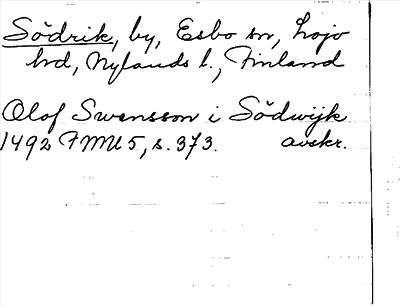 Södrik, by, Esbo sn, Lojo
hd, Nylands l., Finland
Olof Swensson i Södwijk
1492 FMU 5, s. 373. avskr.